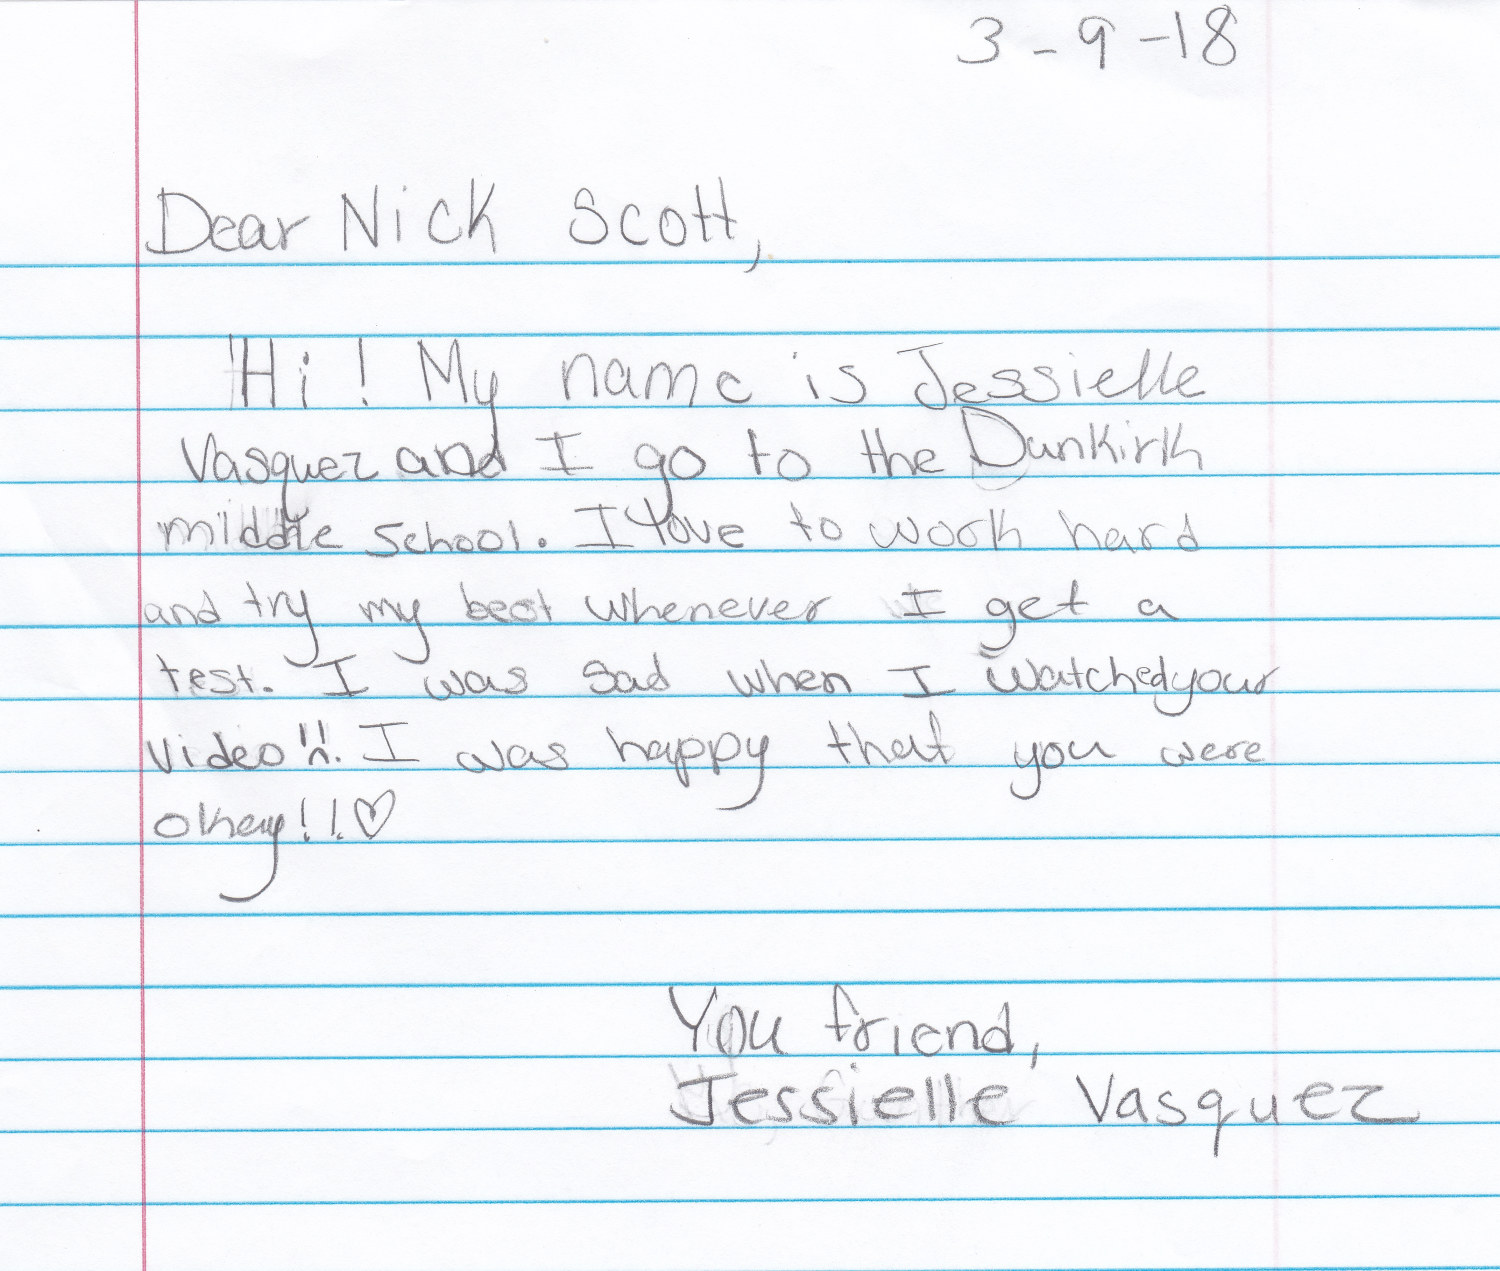 3-9-18
Dear Nick Scott,
Hi! My name is Jessielle
Vasquez and I go to the Dunkirk
middle school. I love to work hard
and try my best whenever I get a
test. I was sad when I watched your
video!! I was happy that you were
okay!!♡
You friend,
Jessielle Vasquez